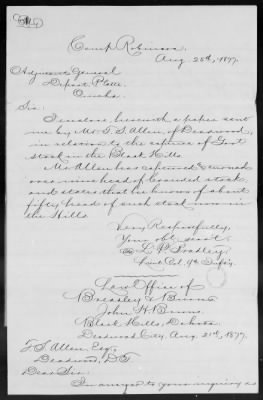 Camp Robinson
Aug 25th, 1877.
Adjutant General
Depart. Platte
Omaha
Sir:
I enclose herewith a paper sent
me by Mr. T. S. Allen, of Deadwood,
in relation to the capture of Govt
stock in the Black Hills.
Mr. Allen has captured &
over nine head of branded stock
and states that he knows of about
fifty head of such stock now in
the Hills.
Very Respectfully,
Your obt servt
L. P. Bradley
Lieut Col. 9th Infty.
Law Office of
Burns
John H. Burns.
Black Hills, Dakota.
Deadwood City Aug. 21st, 1877.
T. S. Allen, Esq.,
Deadwood, D.T.
Dear Sir:
In answer to your inquiry as